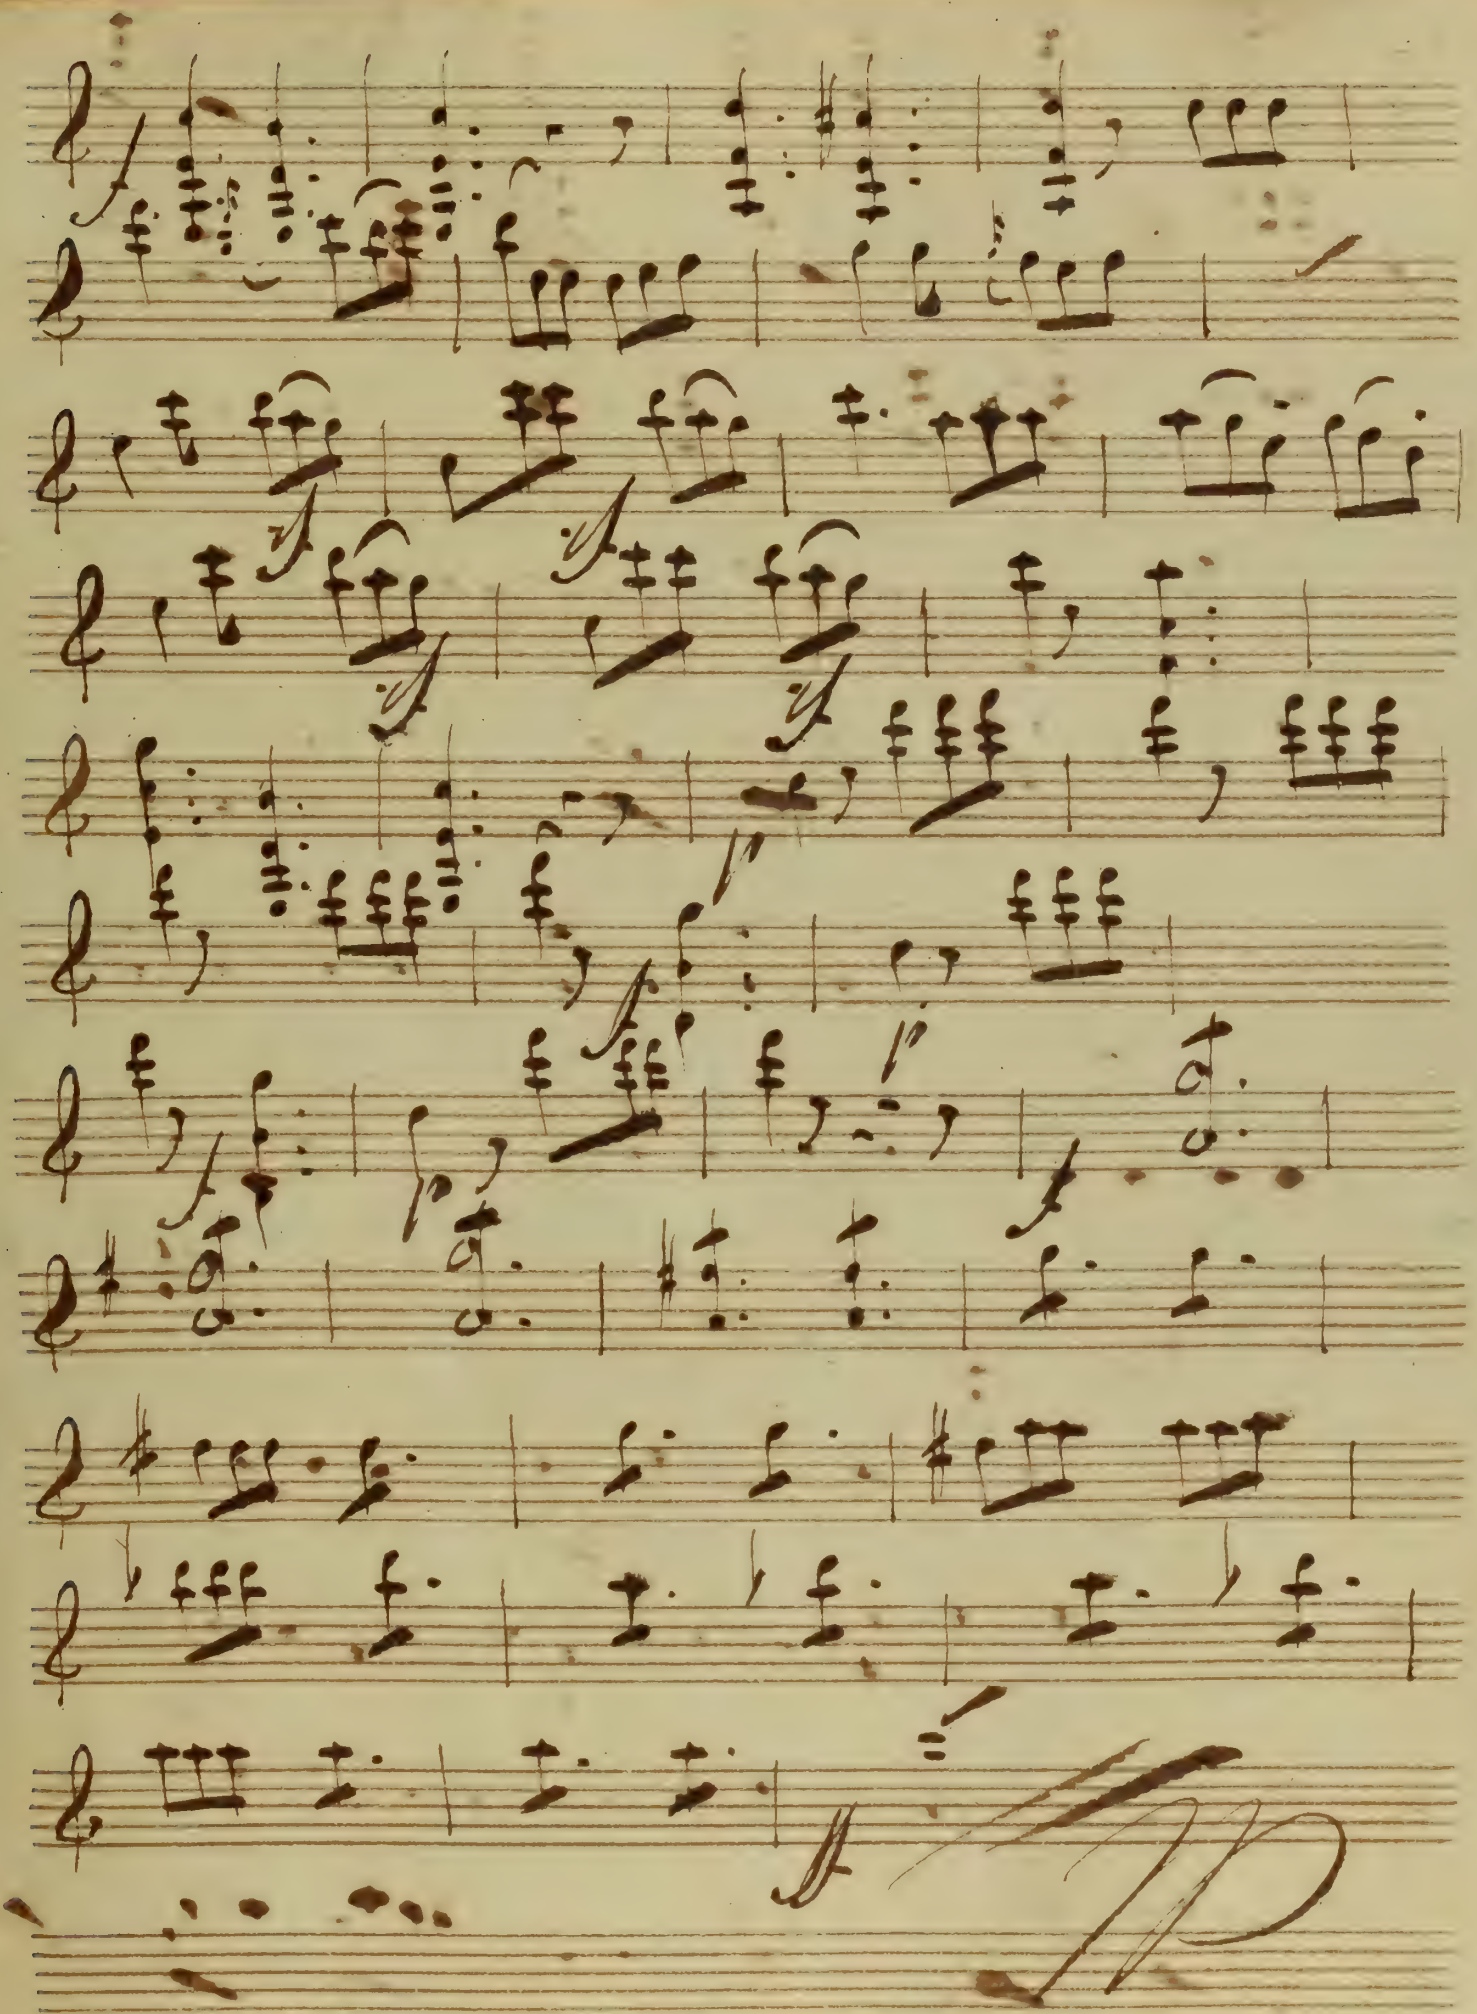 f
sf sf
sf sf
p
f p
f p f
ff